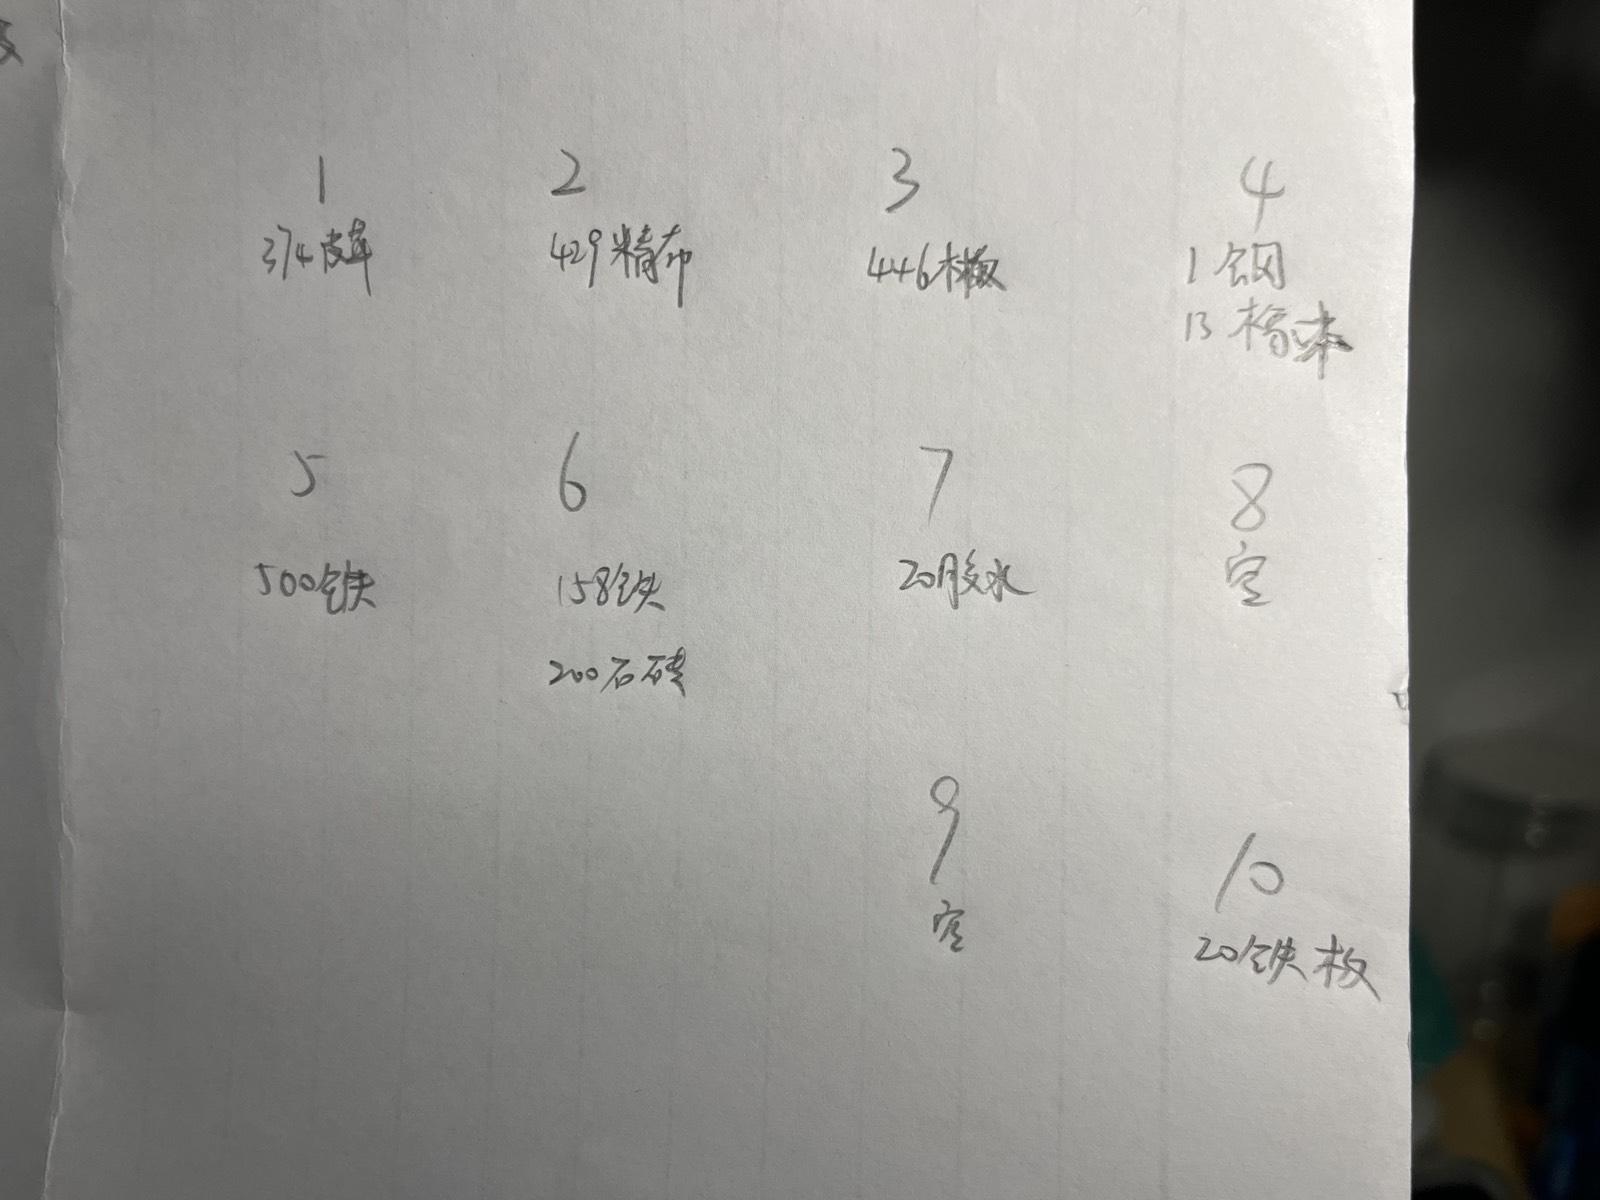 1 2 3 4
374皮革 429精布 446木板 1钢
13橡木
5 6 7 8
500铁 158铁 20胶水 空
200石砖
9 10
空 20铁板